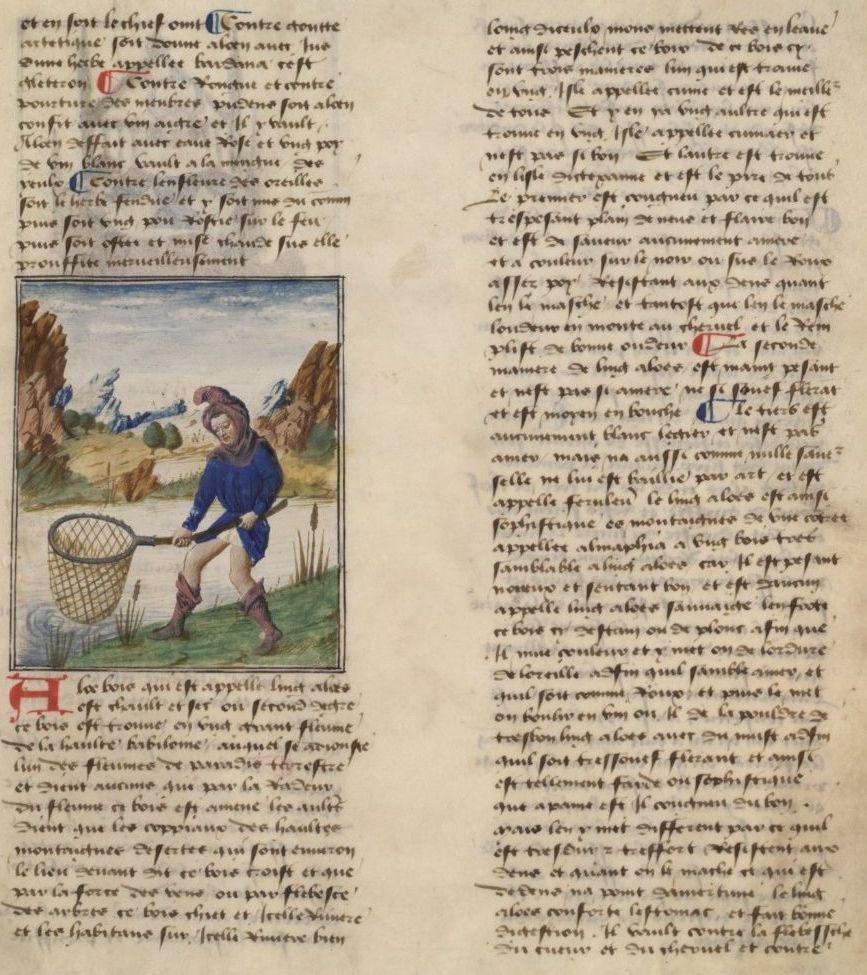 et en soit le chief oint Contre goutte
artetique soit donne aloen avec Jus
dune herbe appellee bardana cest
gleteron Contre Rongne et contre
pourture des menbres pudens soit aloen
confit avec vin aigre et Il y vault
Aloen deffait avec eaue Rose et ung poy
de vin blanc vault a la mengue des
yeulx Contre lenfleure des oreilles
soit le herbe fendue et y soit mis du comin
puis soit ung pou Rostie sur le feu
puis soit ostee et mise chaude sus elle
prouffite merveilleusement
Aloe bois qui est appelle ling aloes
est chault et sec ou second degre
ce bois est trouve en ung grant fleuve
de la haulte babiloine auquel se adiouste
lun des fleuves de paradis terrestre
et dient aucuns que par la Radeur
du fleuve ce bois est amene les aultres
dient que les coppiaux des haultes
montaignes desertes qui sont environ
le lieu devant dit ce bois croist et que
par la force des vens ou par flebesce
des arbres ce bois chiet en Icelle Riviere
et les habitans sur Icelle Riviere bien
loing diceulx mons mettent Res en leaue
et ainsi peschent ce bois de ce bois cy
sont trois manieres lun qui est trouve
en ung Isle appellee cume et est le meilleur
de tous Et y en ya ung aultre qui est
trouve en ung Isle appellee cumaer et
nest pas si bon Et lautre est trouve
en lisle et est le pire de tous
Le premier est congneu par ce quil est
trespesant plain de neus et flaire bon
et est de saveur aucunement amere
et a couleur sur le noir ou sus le Roux
assez poy Resistant aux dens quant
len le masche et tantost que len le masche
loudeur en monte au chervel et le Rem
plist de bonne oudeur La seconde
maniere de ling aloes est mains pesant
et nest pas si amere ne si souef flerat
et est moyen en bouche Le tiers est
aucunement blanc legier et nest pas
amer mais na aussi comme nulle saveur
selle ne lui est baillie par art et est
appelle le ling aloes est ainsi
sophistique es montaignes de une
appellee almaphia a ung bois tres
samblable a ling aloes car Il est pesant
noueux et sentant bon et est daucuns
appelle ling aloes sauvaige len frote
ce bois cy destain ou de plonc afin que
Il mue couleur et y met on de lordure
de loreille adfin quil samble amer et
quil soit comme Roux et puis le met
on boulir en vin ou Il de la pouldre de
tresbon ling aloes avec du must adfin
quil soit tressouef flerant et ainsi
est tellement farde ou sophistique
que a paine est Il congneu du bon
mais len y met different par ce quil
est tresdur treffort Resistent aux
dens et quant on le mache ce qui est
dedens na point damertume le ling
aloes conforte lestomac et fait bonne
digestion Il vault contre la flebessche
du cueur et du chervel et contre